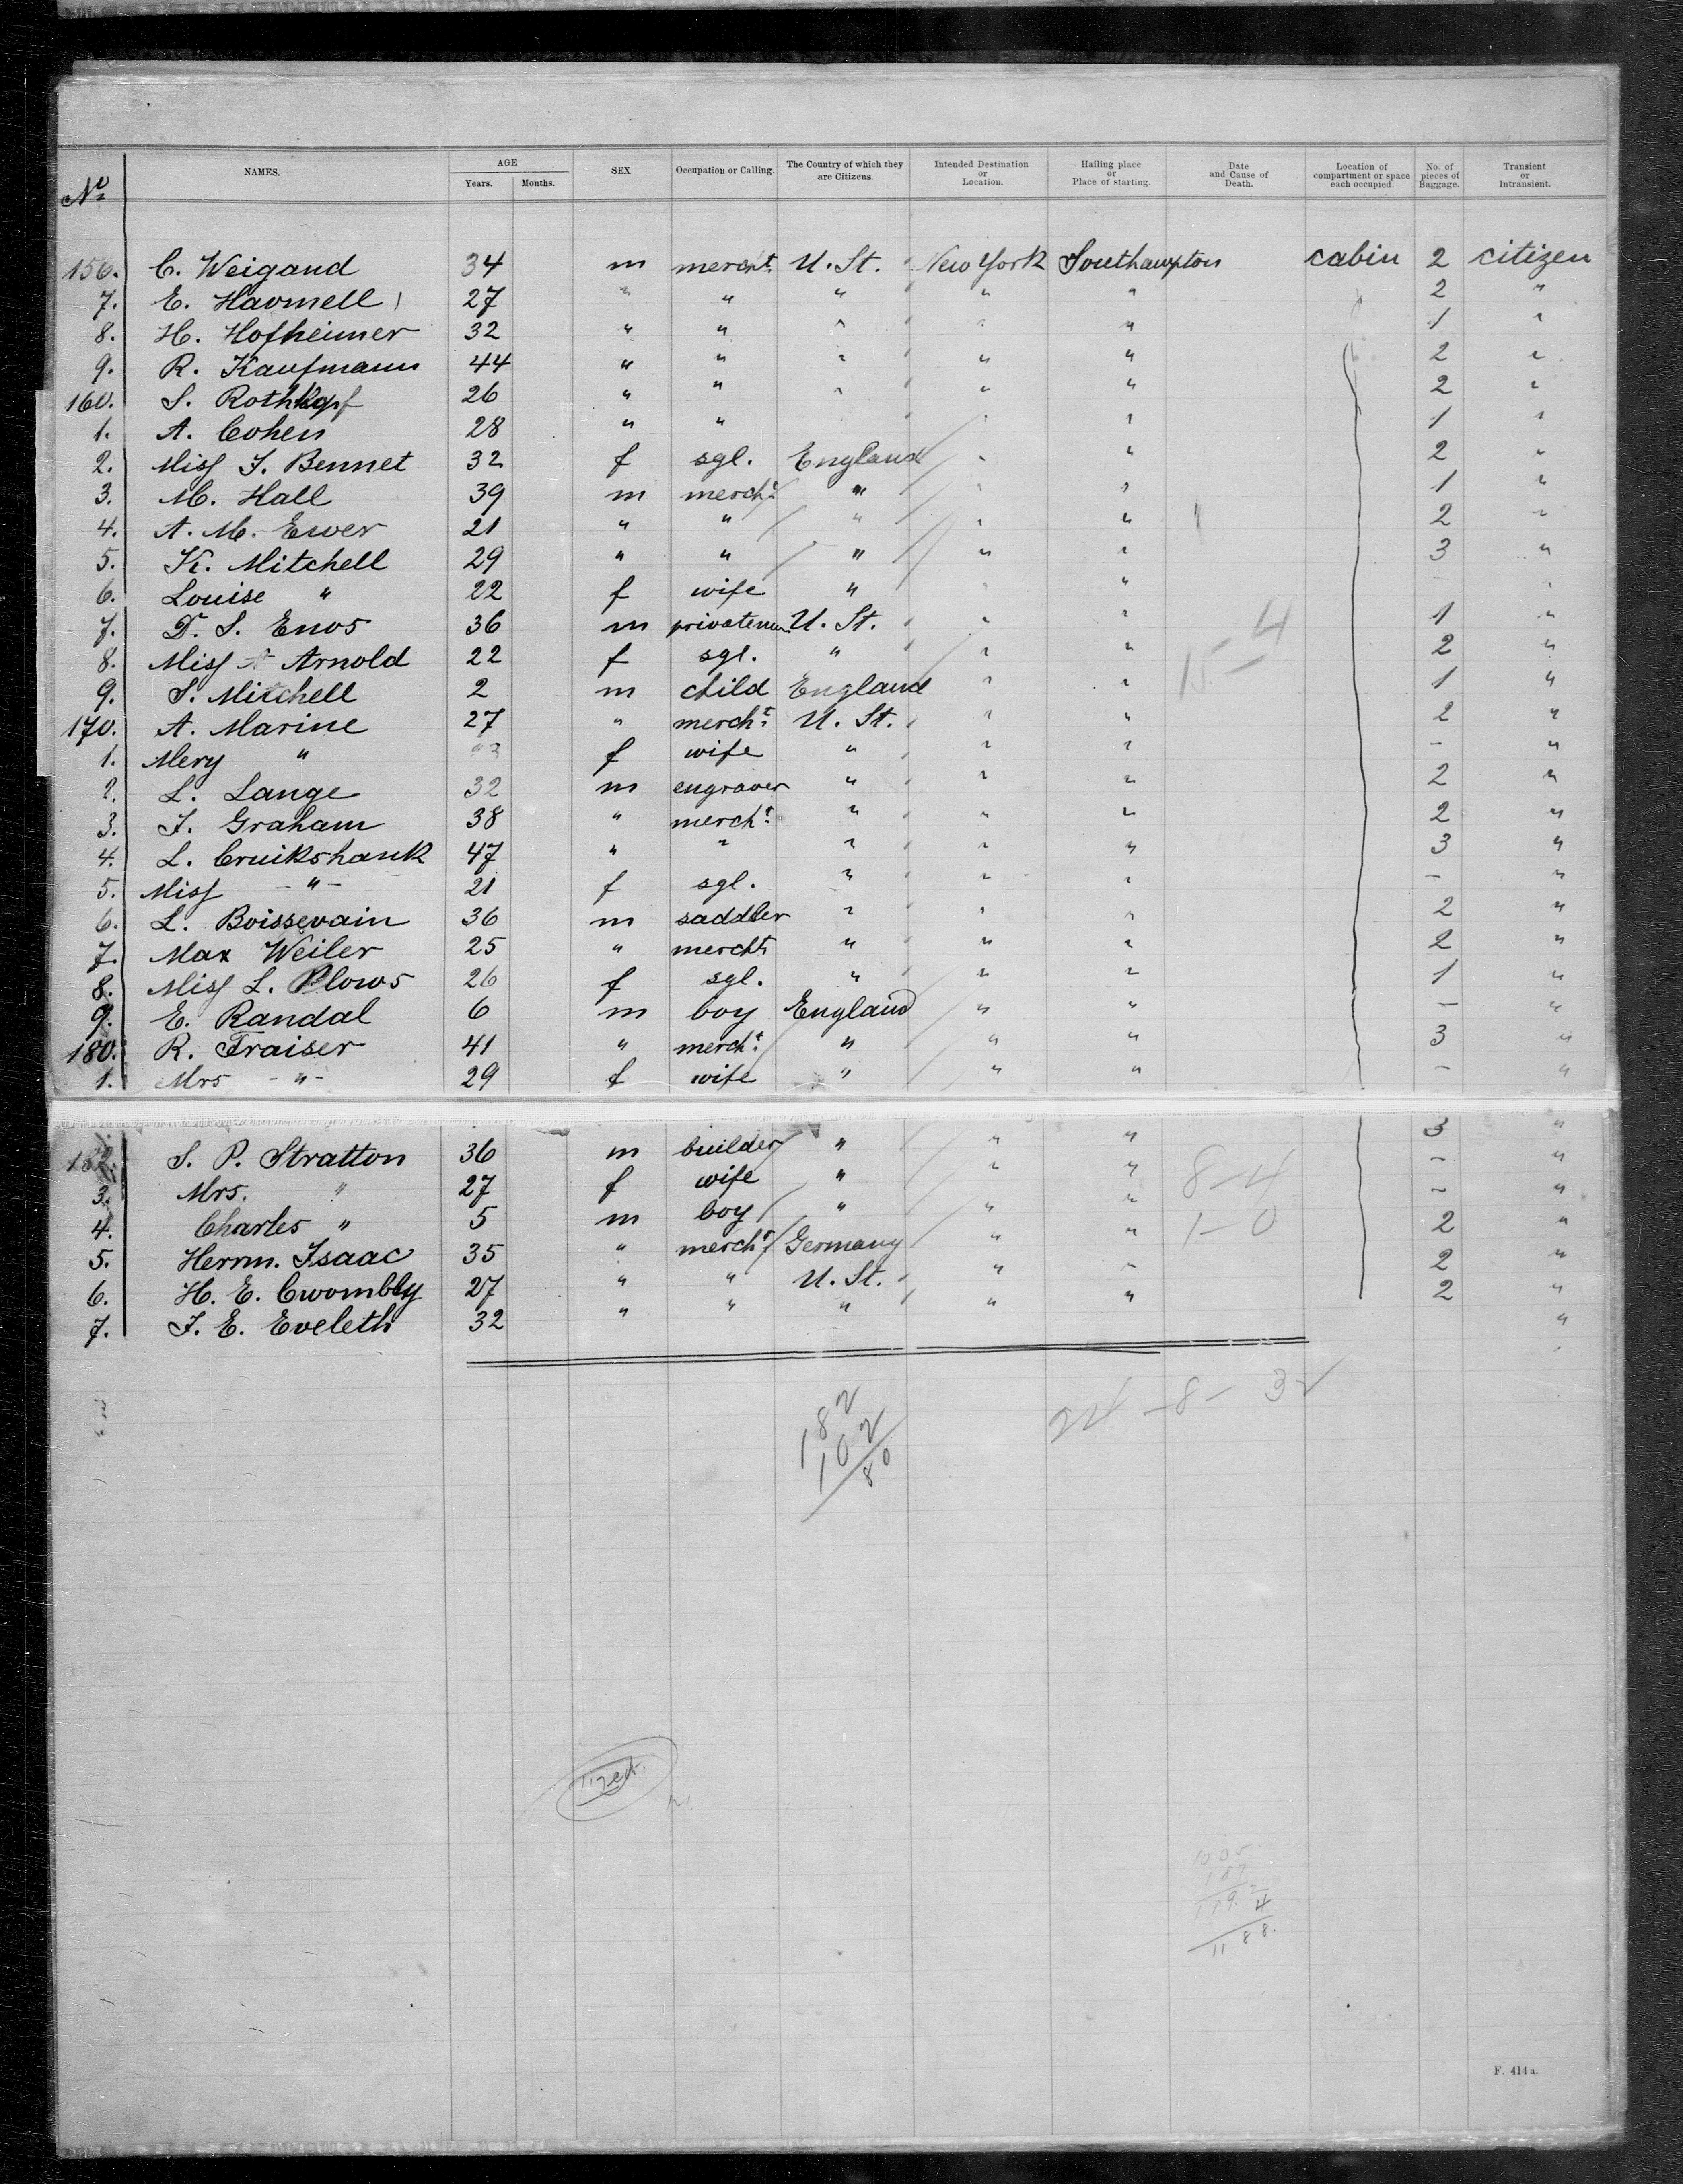 No NAMES. AGE Years. Months. SEX Occupation or Calling. The Country of which they are Citizens. Intended Destination or Location. Hailing place or Place of starting. Date and Cause of Death. Location of compartment or space each occupied. No. of pieces of Baggage. Transient or Intransient.
156. C. Weigand 34 m mercht. U. St. New York Southampton cabin 2 citizen
7. E. Havmell 27 " " " " " 2 "
8. H. Hofheimer 32 " " " " " 1 "
9. R. Kaufmann 44 " " " " " 2 "
160. S. Rothkopf 26 " " " " " 2 "
1. A. Cohen 28 " " " " 1 "
2. Miss J. Bennet 32 f sgl. England " " 2 "
3. M. Hall 39 m mercht. " " " 1 "
4. A. M. Ewer 21 " " " " " 2 "
5. K. Mitchell 29 " " " " " 3 "
6. Louise " 22 f wife " " " - "
7. D. S. Enos 36 m U. St. " " 1 "
8. Miss A Arnold 22 f sgl. " " " 15-4 2 "
9. S. Mitchell 2 m child England " " 1 "
170. A. Marine 27 " mercht. U. St. " " 2 "
1. Mery " f wife " " " - "
2. L. Lange 32 m engraver " " " 2 "
3. J. Graham 38 " mercht. " " " 2 "
4. L. Cruikshank 47 " " " " " 3 "
5. Miss -"- 21 f sgl. " " " - "
6. L. Boissevain 36 m saddler " " " 2 "
7. Max Weiler 25 " mercht. " " " 2 "
8. Miss L. Plows 26 f sgl. " " " 1 "
9. E. Randal 6 m boy England " " - "
180. R. Fraiser 41 " mercht. " " " 3 "
1. Mrs -"- 29 f wife " " " - "
182. S. P. Stratton 36 m builder " " " 3 "
3. Mrs. " 27 f wife " " " 8-4 - "
4. Charles " 5 m boy " " " 1-0 - "
5. Herrm. Isaac 35 " mercht. Germany " " 2 "
6. H. E. Cwombly 27 " " U. St. " " 2 "
7. J. E. Eveleth 32 " " " " " 2 "
24-8-32
182
102
80
4
1188.
F. 414a.